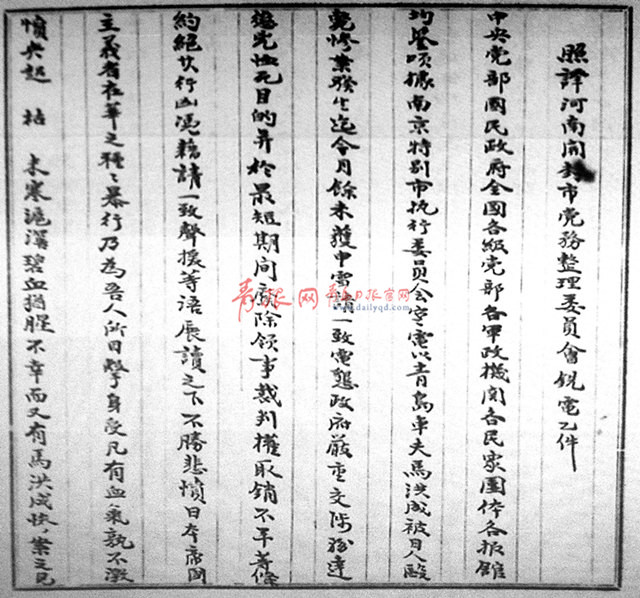 照譯河南開封市党務整理委員會銑電乙件
中央党部國民政府全國各級党部各軍政機関各民衆團体各报館
均鑒頃據南京特别市执行委員会電以青島車夫馬洪成被日人毆
斃惨案發生迄今月餘未獲申雪請一致電懇政府嚴重交涉務達
懲兇恤死目的并於最短期间廢除领事裁判權取銷不平等條
約絕其行凶憑藉請一致聲援等语展讀之下不勝悲憤日本帝國
主義者在華之種々暴行乃為吾人所目擊身受凡有血氣孰不激
憤 起 枯 未寒滬漢碧血猶腥不幸而又有馬洪成惨案之見
青报网
青岛日报官网
www.dailyqd.com